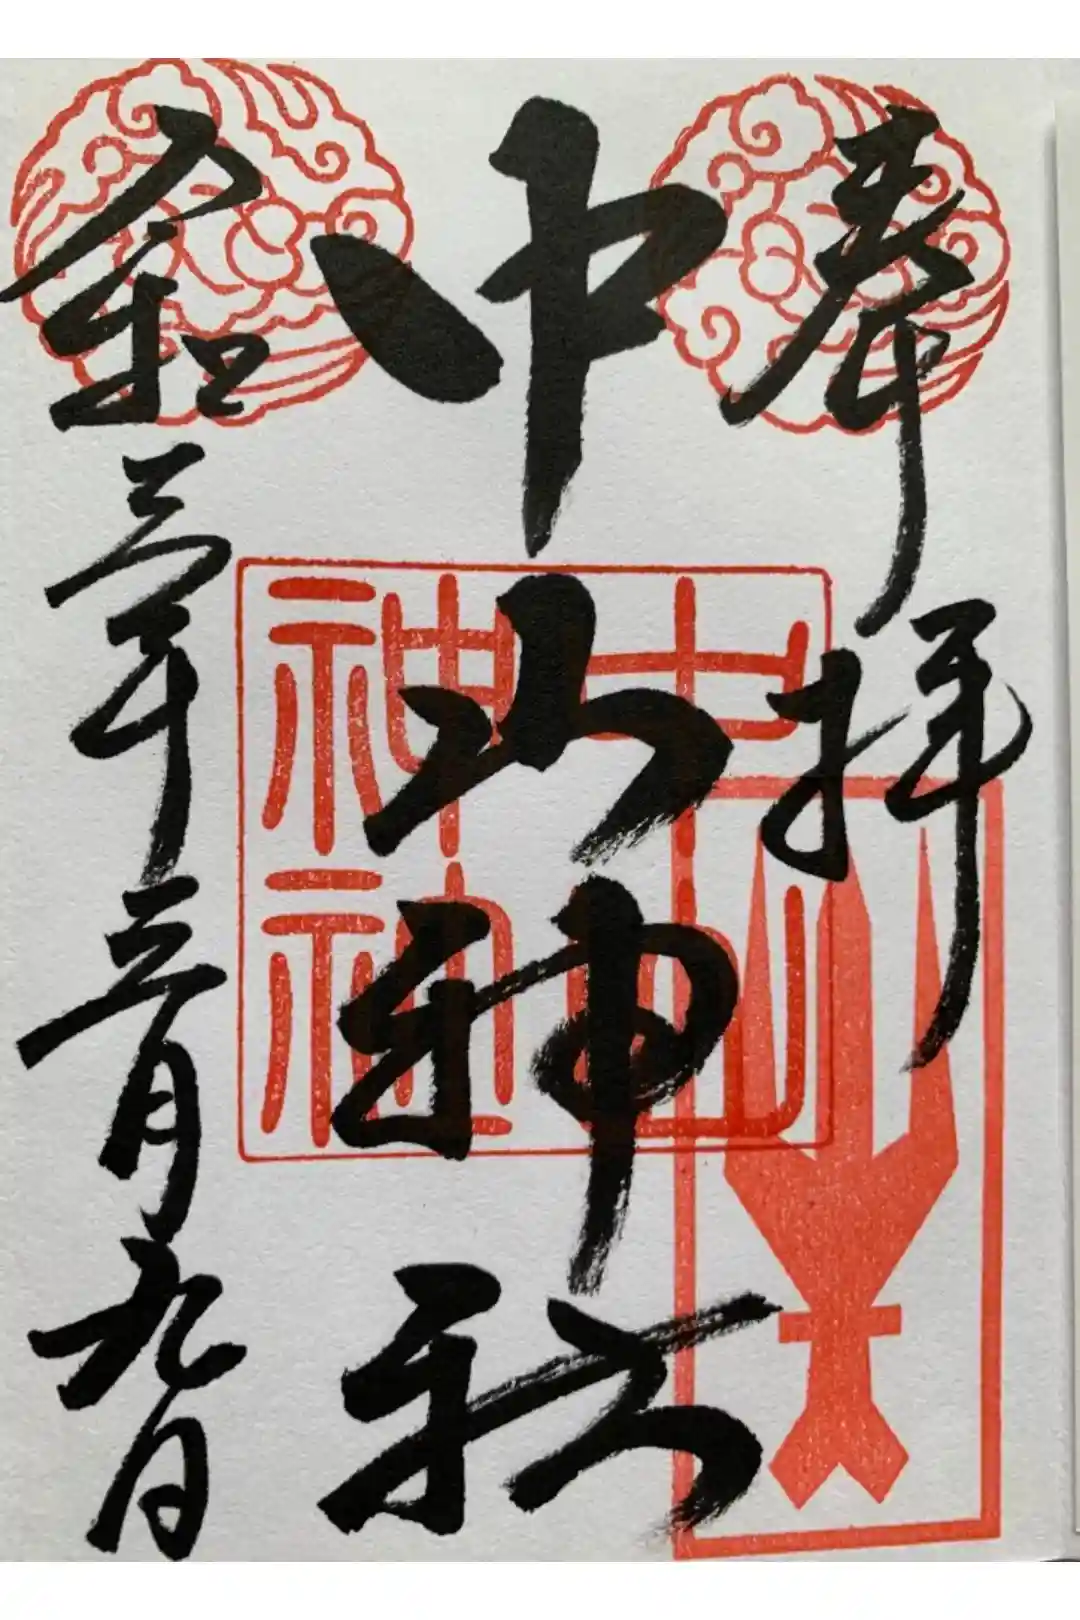 奉拝
中山神社
令和三年三月九日
中山
神社